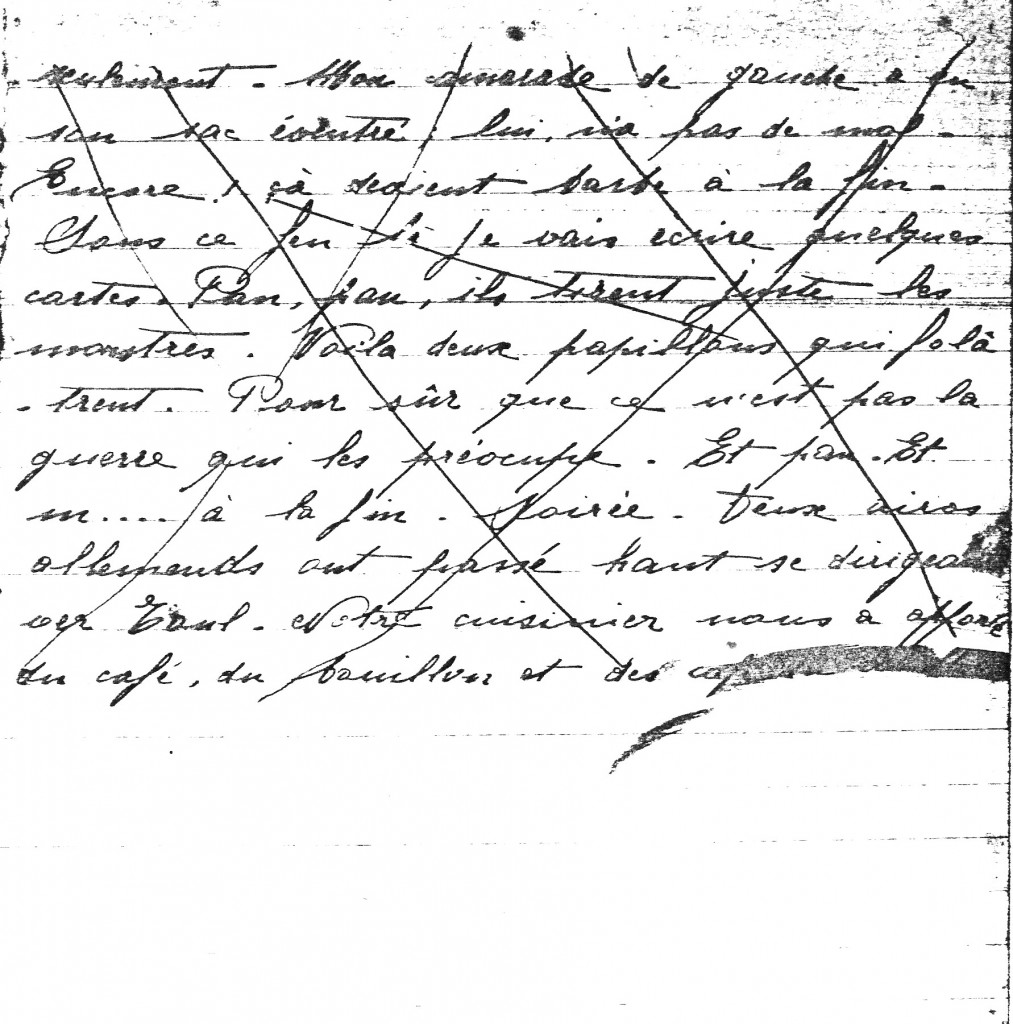 seulement. Mon camarade de gauche a eu
son sac éventré, lui, n'a pas de mal.
Encore! çà devient barbe à la fin.
Sous ce feu là je vais écrire quelques
cartes. Pan, pan, ils tirent juste les
monstres. Voila deux papillons qui folâ
-trent. Pour sûr que ce n'est pas la
guerre qui les préocupe. Et pan. Et
m.... à la fin. Soirée. Deux airos
allemends ont passé haut se dirigeant
ver Toul. Notre cuisinier nous a apporté
du café, du bouillon et des